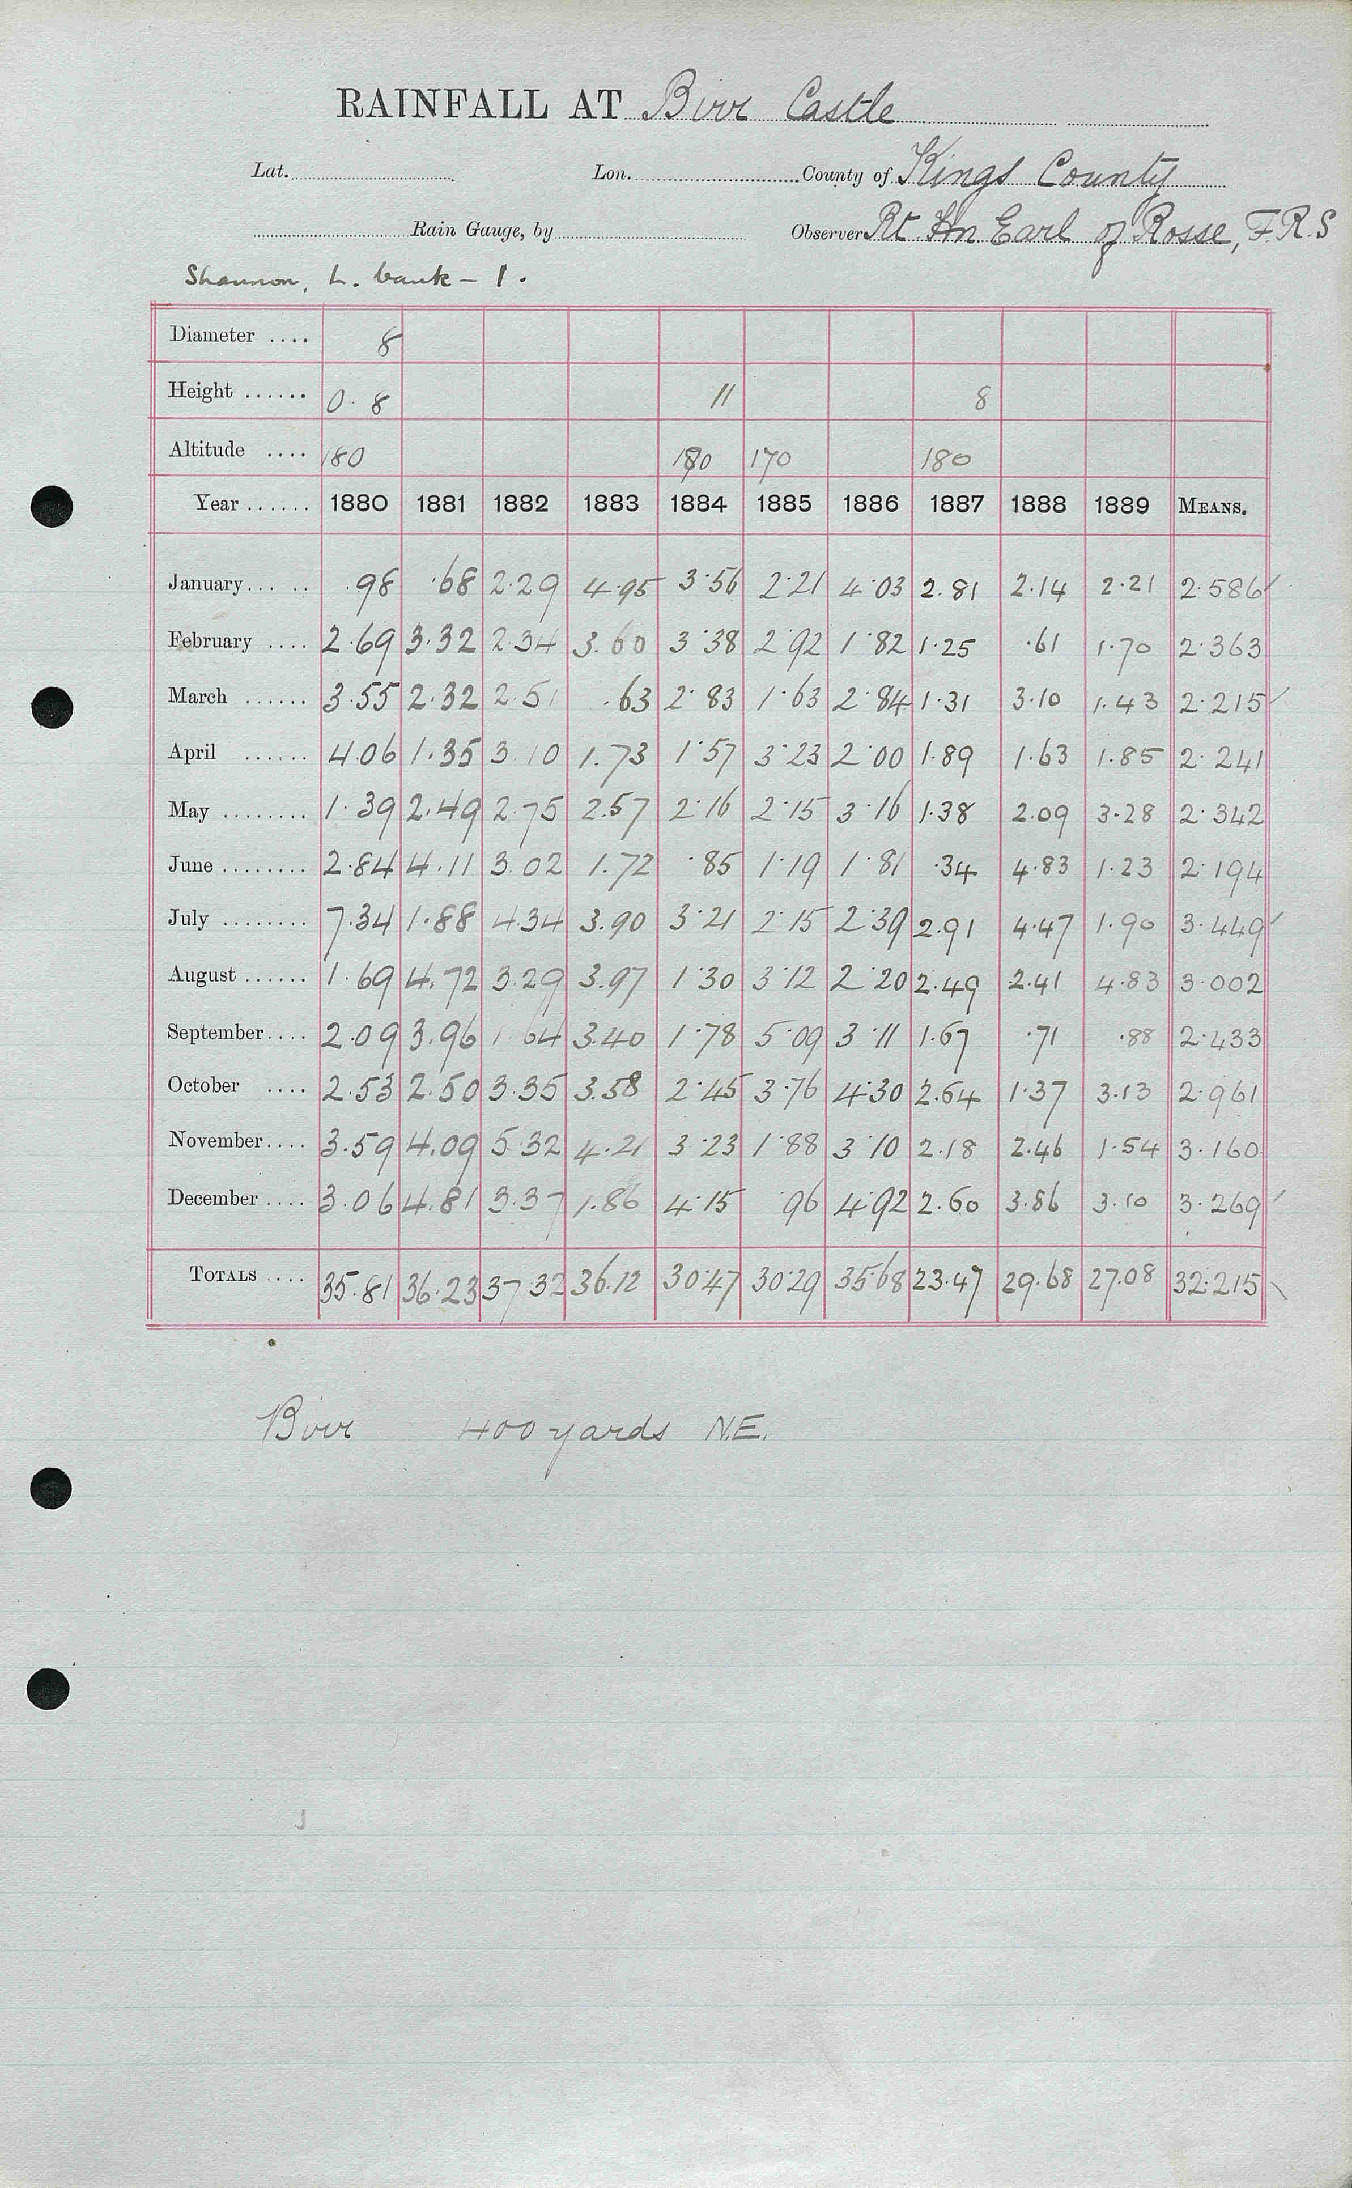 RAINFALL AT Birr Castle
Lat. Lon. County of Kings County
Rain Gauge, by Observer Rt Hn Earl of Rosse, F.R.S
Shannon, L. bank – 1.
Diameter .... 8
Height ...... 0.8 11 8
Altitude .... 180 180 170 180
Year ...... 1880 1881 1882 1883 1884 1885 1886 1887 1888 1889 MEANS.
January... .. .98 .68 2.29 4.95 3.56 2.21 4.03 2.81 2.14 2.21 2.586
February .... 2.69 3.32 2.34 3.60 3.38 2.92 1.82 1.25 .61 1.70 2.363
March ...... 3.55 2.32 2.51 .63 2.83 1.63 2.84 1.31 3.10 1.43 2.215
April ...... 4.06 1.35 3.10 1.73 1.57 3.23 2.00 1.89 1.63 1.85 2.241
May ........ 1.39 2.49 2.75 2.57 2.16 2.15 3.16 1.38 2.09 3.28 2.342
June ........ 2.84 4.11 3.02 1.72 .85 1.19 1.81 .34 4.83 1.23 2.194
July ........ 7.34 1.88 4.34 3.90 3.21 2.15 2.39 2.91 4.47 1.90 3.449
August ...... 1.69 4.72 3.29 3.97 1.30 3.12 2.20 2.49 2.41 4.83 3.002
September.... 2.09 3.96 1.64 3.40 1.78 5.09 3.11 1.67 .71 .88 2.433
October .... 2.53 2.50 3.35 3.58 2.45 3.76 4.30 2.64 1.37 3.13 2.961
November.... 3.59 4.09 5.32 4.21 3.23 1.88 3.10 2.18 2.46 1.54 3.160
December .... 3.06 4.81 3.37 1.86 4.15 .96 4.92 2.60 3.86 3.10 3.269
TOTALS .... 35.81 36.23 37.32 36.12 30.47 30.29 35.68 23.47 29.68 27.08 32.215
Birr 400 yards N.E.